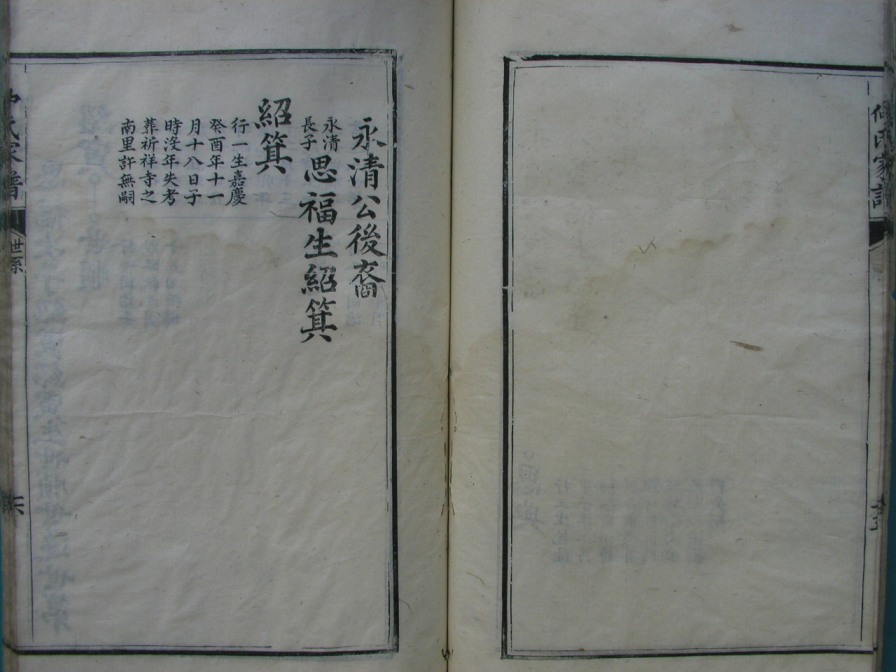 永清公後裔
永清
長子
思福生紹箕
紹箕
行一生嘉慶
癸酉年十一
月十八日子
時沒年失考
葬祈祥寺之
南里許無嗣
氏家譜
世系